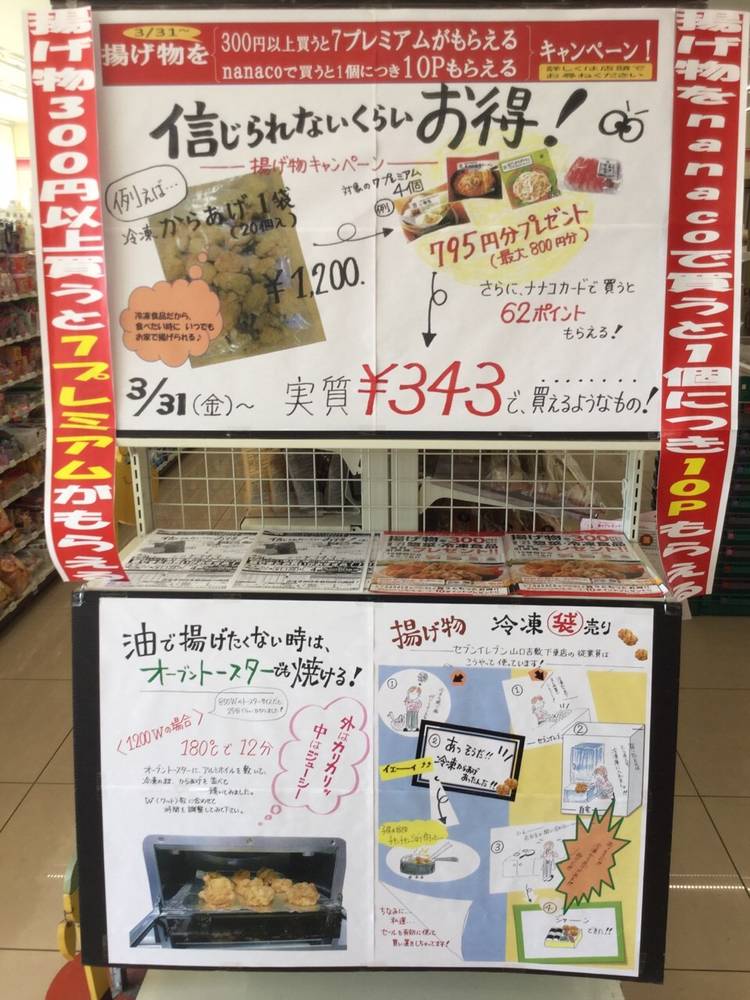 3/31〜
揚げ物を
300円以上買うと7プレミアムがもらえる
nanacoで買うと1個につき10Pもらえる
キャンペーン!
詳しくは店頭で
お尋ねください
揚げ物300円以上買うと7プレミアムがもらえる
揚げ物をnanacoで買うと1個につき10Pもらえる
信じられないくらいお得!
揚げ物キャンペーン
例えば…
冷凍からあげ1袋
(20個入)
¥1,200.
冷凍食品だから、
食べたい時に いつでも
お家で揚げられる♪
対象の7プレミアム
4個
例
795円分プレゼント
(最大800円分)
さらに、ナナコカードで買うと
62ポイント
もらえる!
3/31(金)〜 実質¥343で、買えるようなもの!
油で揚げたくない時は、
オーブントースターでも焼ける!
〈1200Wの場合〉
180℃で12分
外はカリカリッ
中はジューシー!
オーブントースターに、アルミホイルを敷いて、
W(ワット)数に合わせて
時間を調整してみて下さい。
揚げ物 冷凍 袋売り
セブンイレブン山口吉敷下東店の従業員は
こうやって使っています!
①
② あっそうだ!!
冷凍からあげ
あったんだ!!
イェーイ
ちなみに…
私達、
セールも有効に使って
買い置きしちゃってます!
①
②
③
④
できた!!